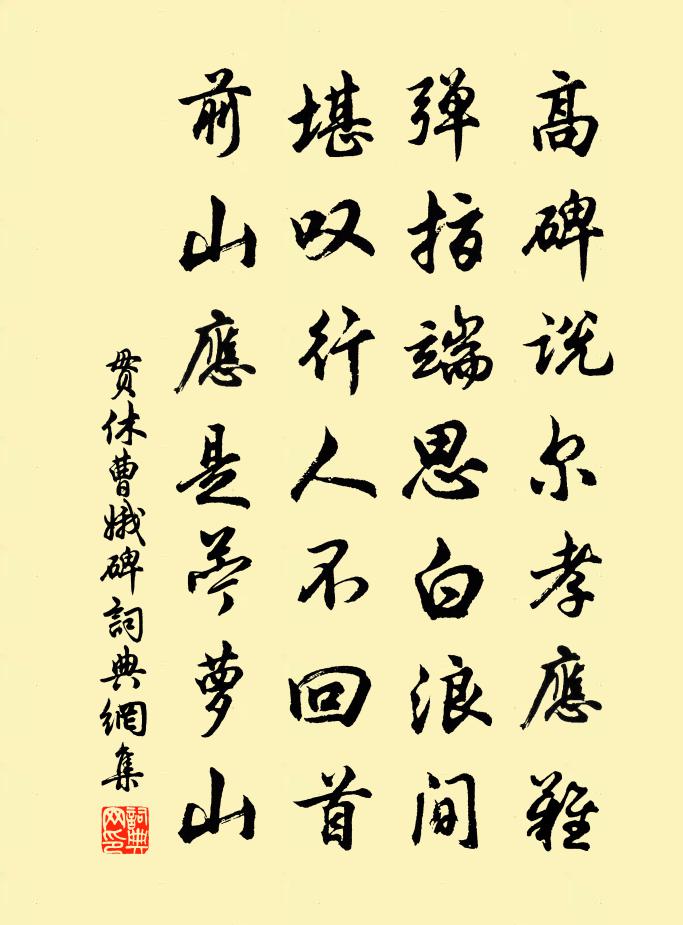 髙碑说尔孝應難
弹指端思白浪间
堪叹行人不回首
前山應是苧萝山
貫休曹娥碑詞典網集
詞典网印